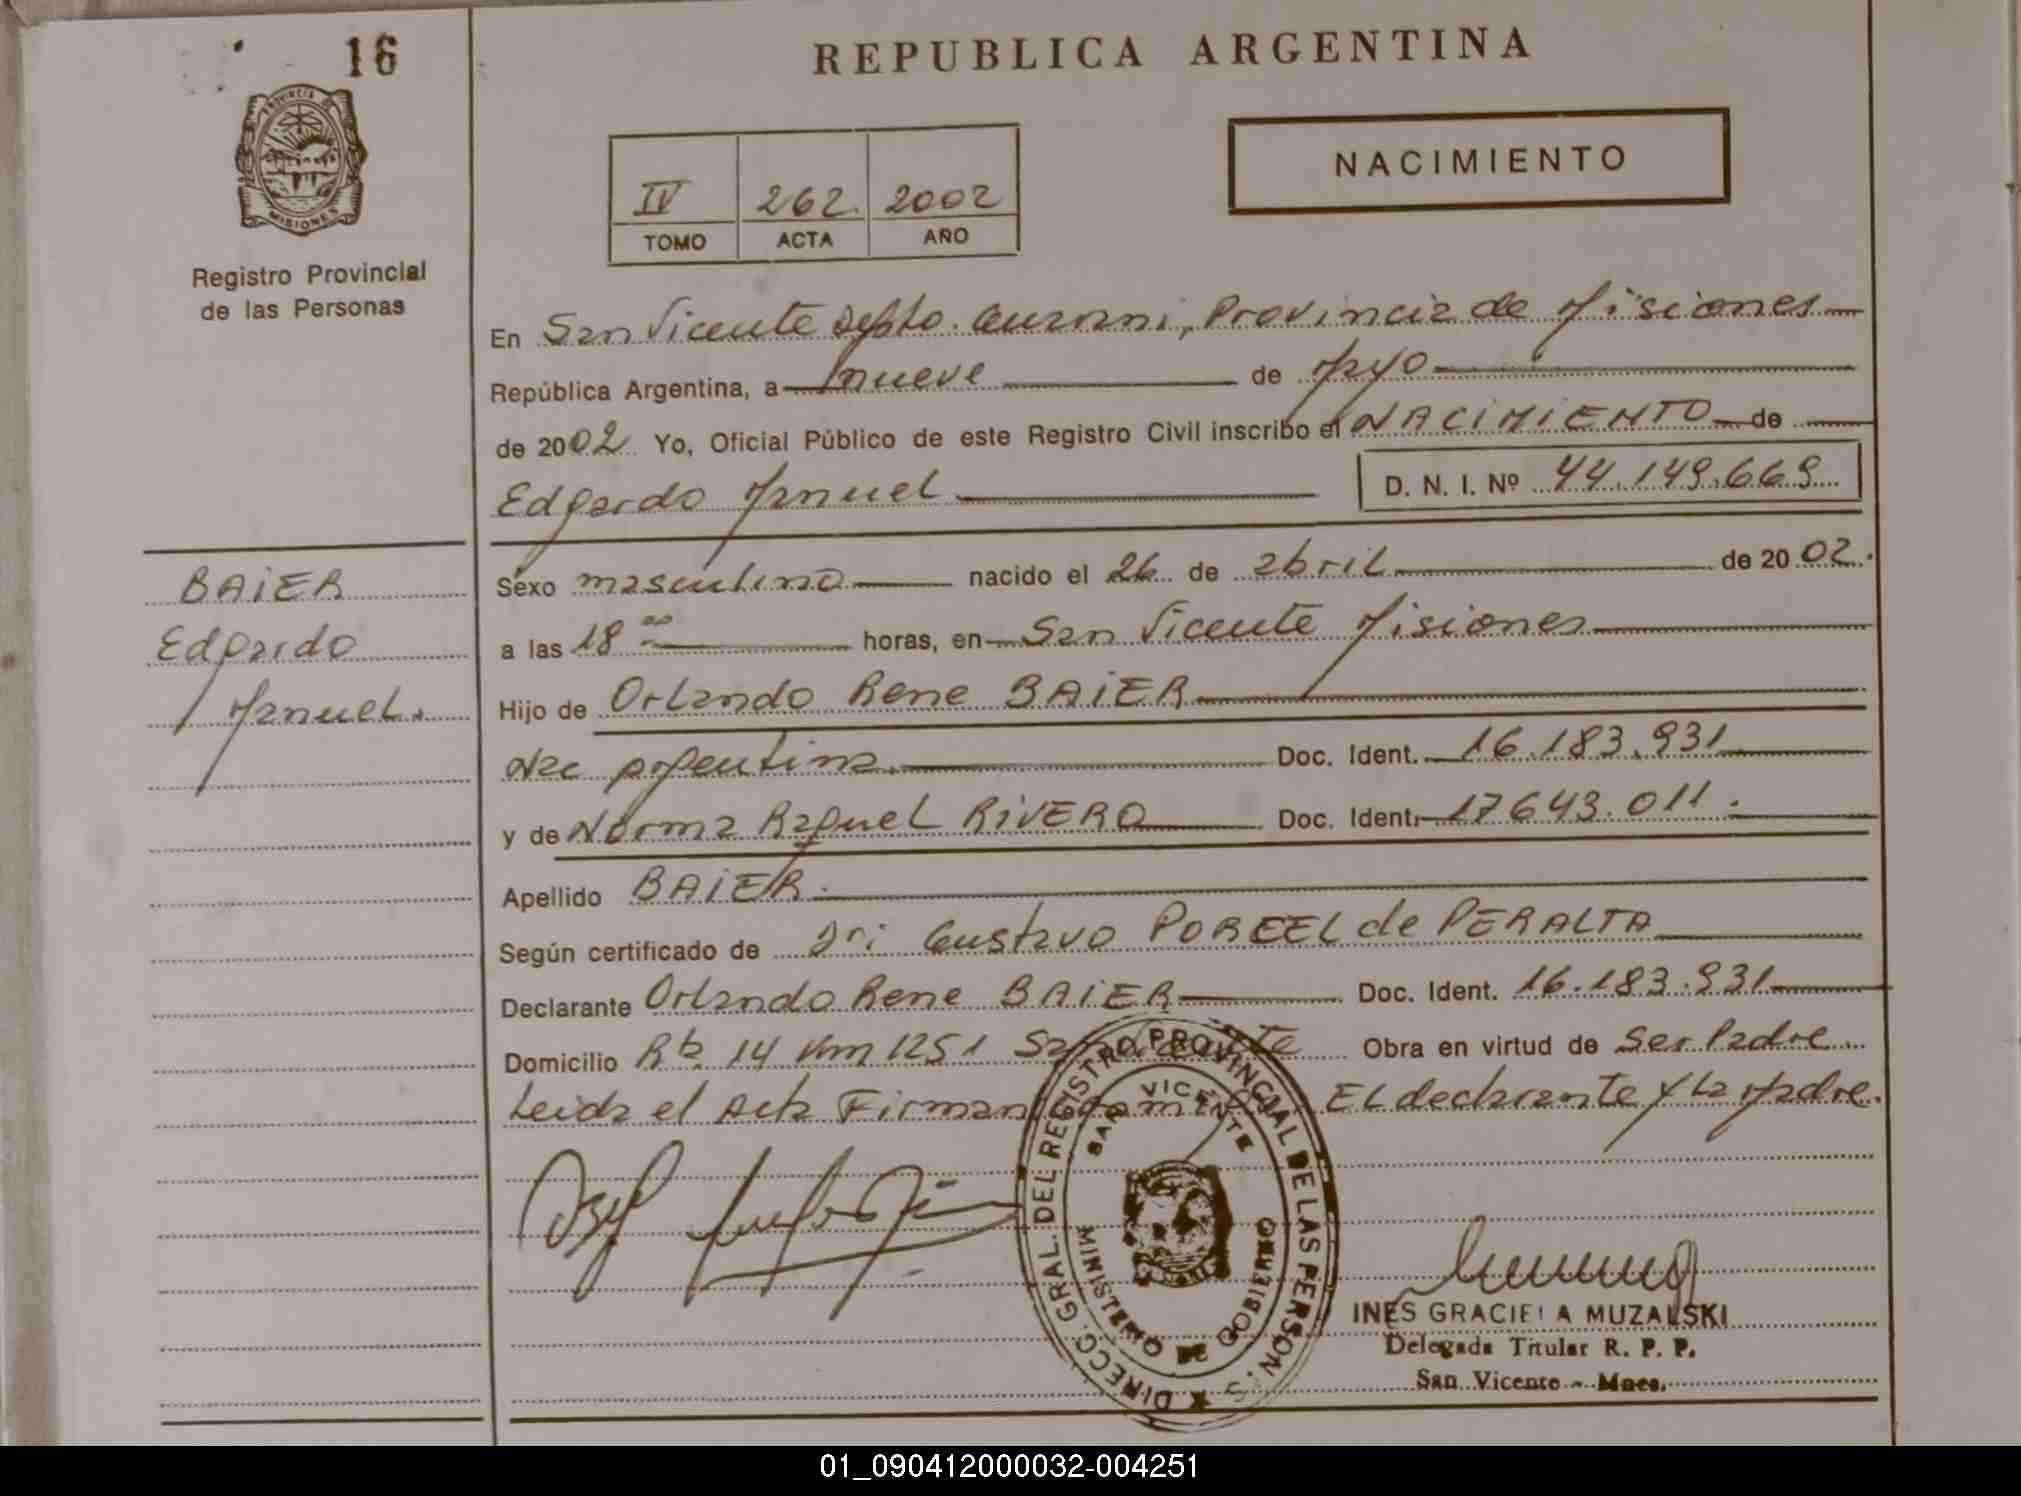 16
PROVINCIA DE
MISIONES
Registro Provincial
de las Personas
REPUBLICA ARGENTINA
NACIMIENTO
IV 262. 2002
TOMO ACTA AÑO
En San Vicente Depto. Guarani, Provincia de Misiones
República Argentina, a nueve de Mayo
de 2002 Yo, Oficial Público de este Registro Civil inscribo el NACIMIENTO de
Edgardo Manuel D. N. I. Nº 44.149.669
BAIER
Edgardo
Manuel.
Sexo masculino nacido el 26 de abril de 2002.
a las 18 00 horas, en San Vicente Misiones
Hijo de Orlando Rene BAIER
Nac Argentina. Doc. Ident. 16.183.931
y de Norma Raquel RIVERO Doc. Ident. 17643.011.
Apellido BAIER.
Según certificado de Dr: Gustavo POREEL de PERALTA
Declarante Orlando Rene BAIER Doc. Ident. 16.183.931
Domicilio Rta. 14 Km 1251 San Vicente Obra en virtud de Ser Padre.
Leida el Acta Firman El declarante y La Madre.
DIRECC. GRAL. DEL REGISTRO PROVINCIAL DE LAS PERSONAS
SAN VICENTE
MINISTERIO DE GOBIERNO
INES GRACIELA MUZALSKI
Delegada Titular R. P. P.
San Vicente - Mnes.
01_090412000032-004251